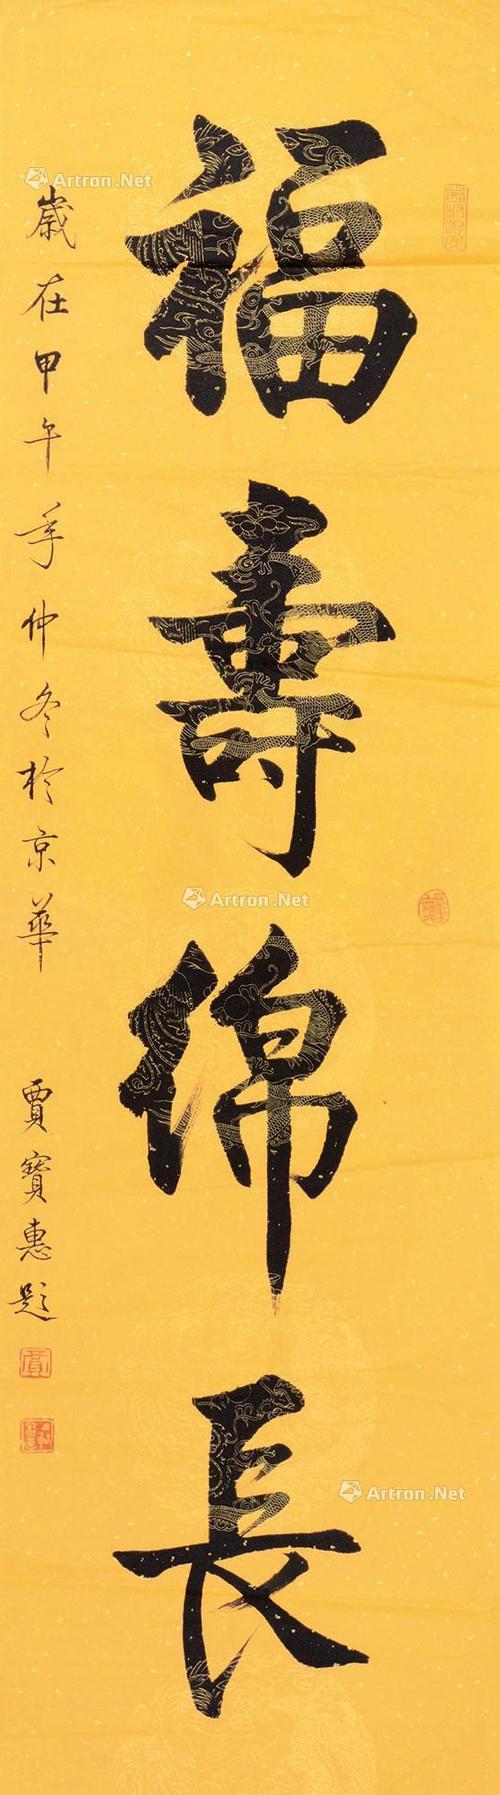 福壽綿長
歲在甲午年仲冬於京華
賈寶惠題
Artron.Net
Artron.Net
Artron.Net